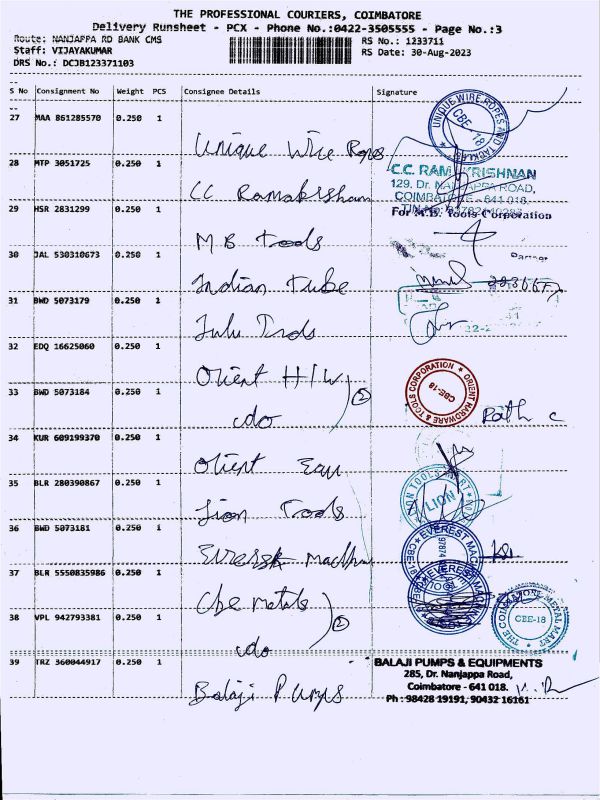 THE PROFESSIONAL COURIERS, COIMBATORE
Delivery Runsheet - PCX - Phone No.:0422-3505555 - Page No.:3
Route: NANJAPPA RD BANK CMS
RS No.: 1233711
Staff: VIJAYAKUMAR
RS Date: 30-Aug-2023
DRS No.: DCJB123371103
S No Consignment No Weight PCS Consignee Details Signature
27 MAA 861285570 0.250 1
UNIQUE WIRE ROPES AND TACKLES CBE-18
Unique Wire Ropes
28 MTP 3051725 0.250 1
C.C. RAMAKRISHNAN
129, Dr. NANJAPPA ROAD,
COIMBATORE - 641 018.
CC Ramakrisham
29 HSR 2831299 0.250 1
For M.B. Tools Corporation
M B tools
Partner
30 JAL 530310673 0.250 1
Indian tube
31 BWD 5073179 0.250 1
32 EDQ 16625060 0.250 1
Orient H/W
ORIENT HARDWARE & TOOLS CORPORATION CBE-18
33 BWD 5073184 0.250 1
cdo
2
34 KUR 609199370 0.250 1
Orient
35 BLR 280390867 0.250 1
LION
Lion Tools
36 BWD 5073181 0.250 1
EVEREST
37 BLR 5550835986 0.250 1
Cbe metals
EVEREST
38 VPL 942793381 0.250 1
2
THE COIMBATORE METAL MART CBE-18
cdo
39 TRZ 360044917 0.250 1
BALAJI PUMPS & EQUIPMENTS
285, Dr. Nanjappa Road,
Coimbatore - 641 018.
Ph : 98428 19191, 90432 16161
Balaji Pumps